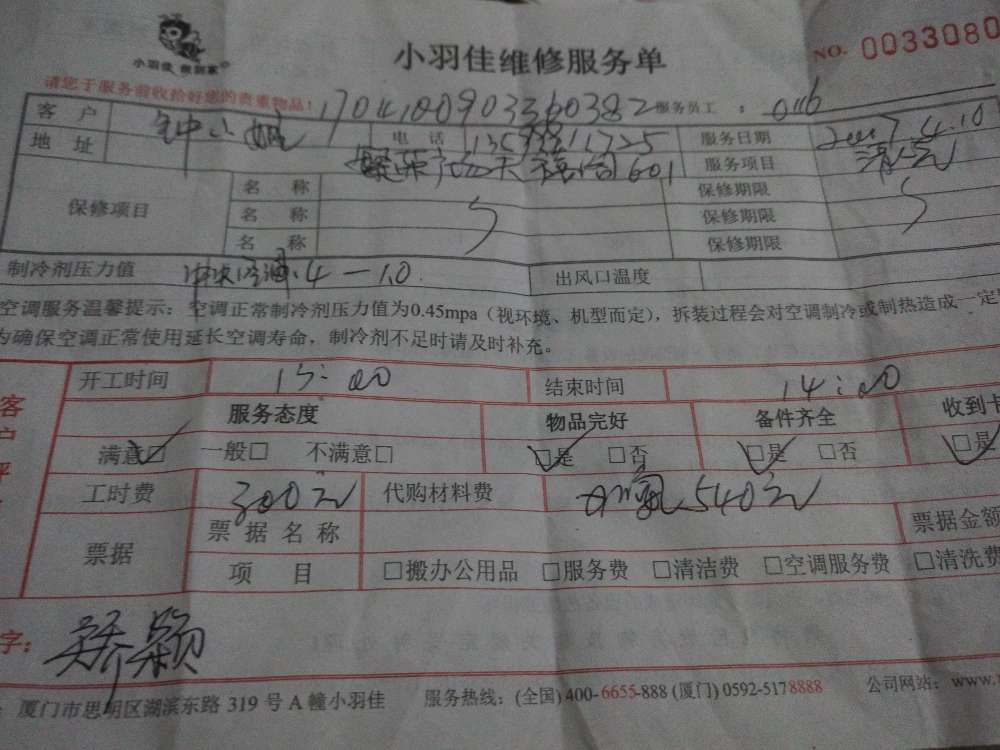 小羽佳 小羽佳维修服务单 NO. 0033080
请您于服务前收拾好您的贵重物品! 1704100903360382 服务员工: 016
客户 电话 服务日期 4.10
地址 601 服务项目
保修项目 名称 保修期限
名称 保修期限
名称 保修期限
制冷剂压力值 出风口温度
空调服务温馨提示：空调正常制冷剂压力值为0.45mpa（视环境、机型而定），拆装过程会对空调制冷或制热造成一定
为确保空调正常使用延长空调寿命，制冷剂不足时请及时补充。
开工时间 结束时间 14:00
客户 服务态度 物品完好 备件齐全 收到卡
满意□ 一般□ 不满意□ □是 □否 □是 □否 □是
工时费 300元 代购材料费 540元
票据 票据名称 票据金额
项目 □搬办公用品 □服务费 □清洁费 □空调服务费 □清洗费
字：
厦门市思明区湖滨东路 319 号 A 幢小羽佳 服务热线：(全国) 400-6655-888 (厦门) 0592-5178888 公司网站：www.